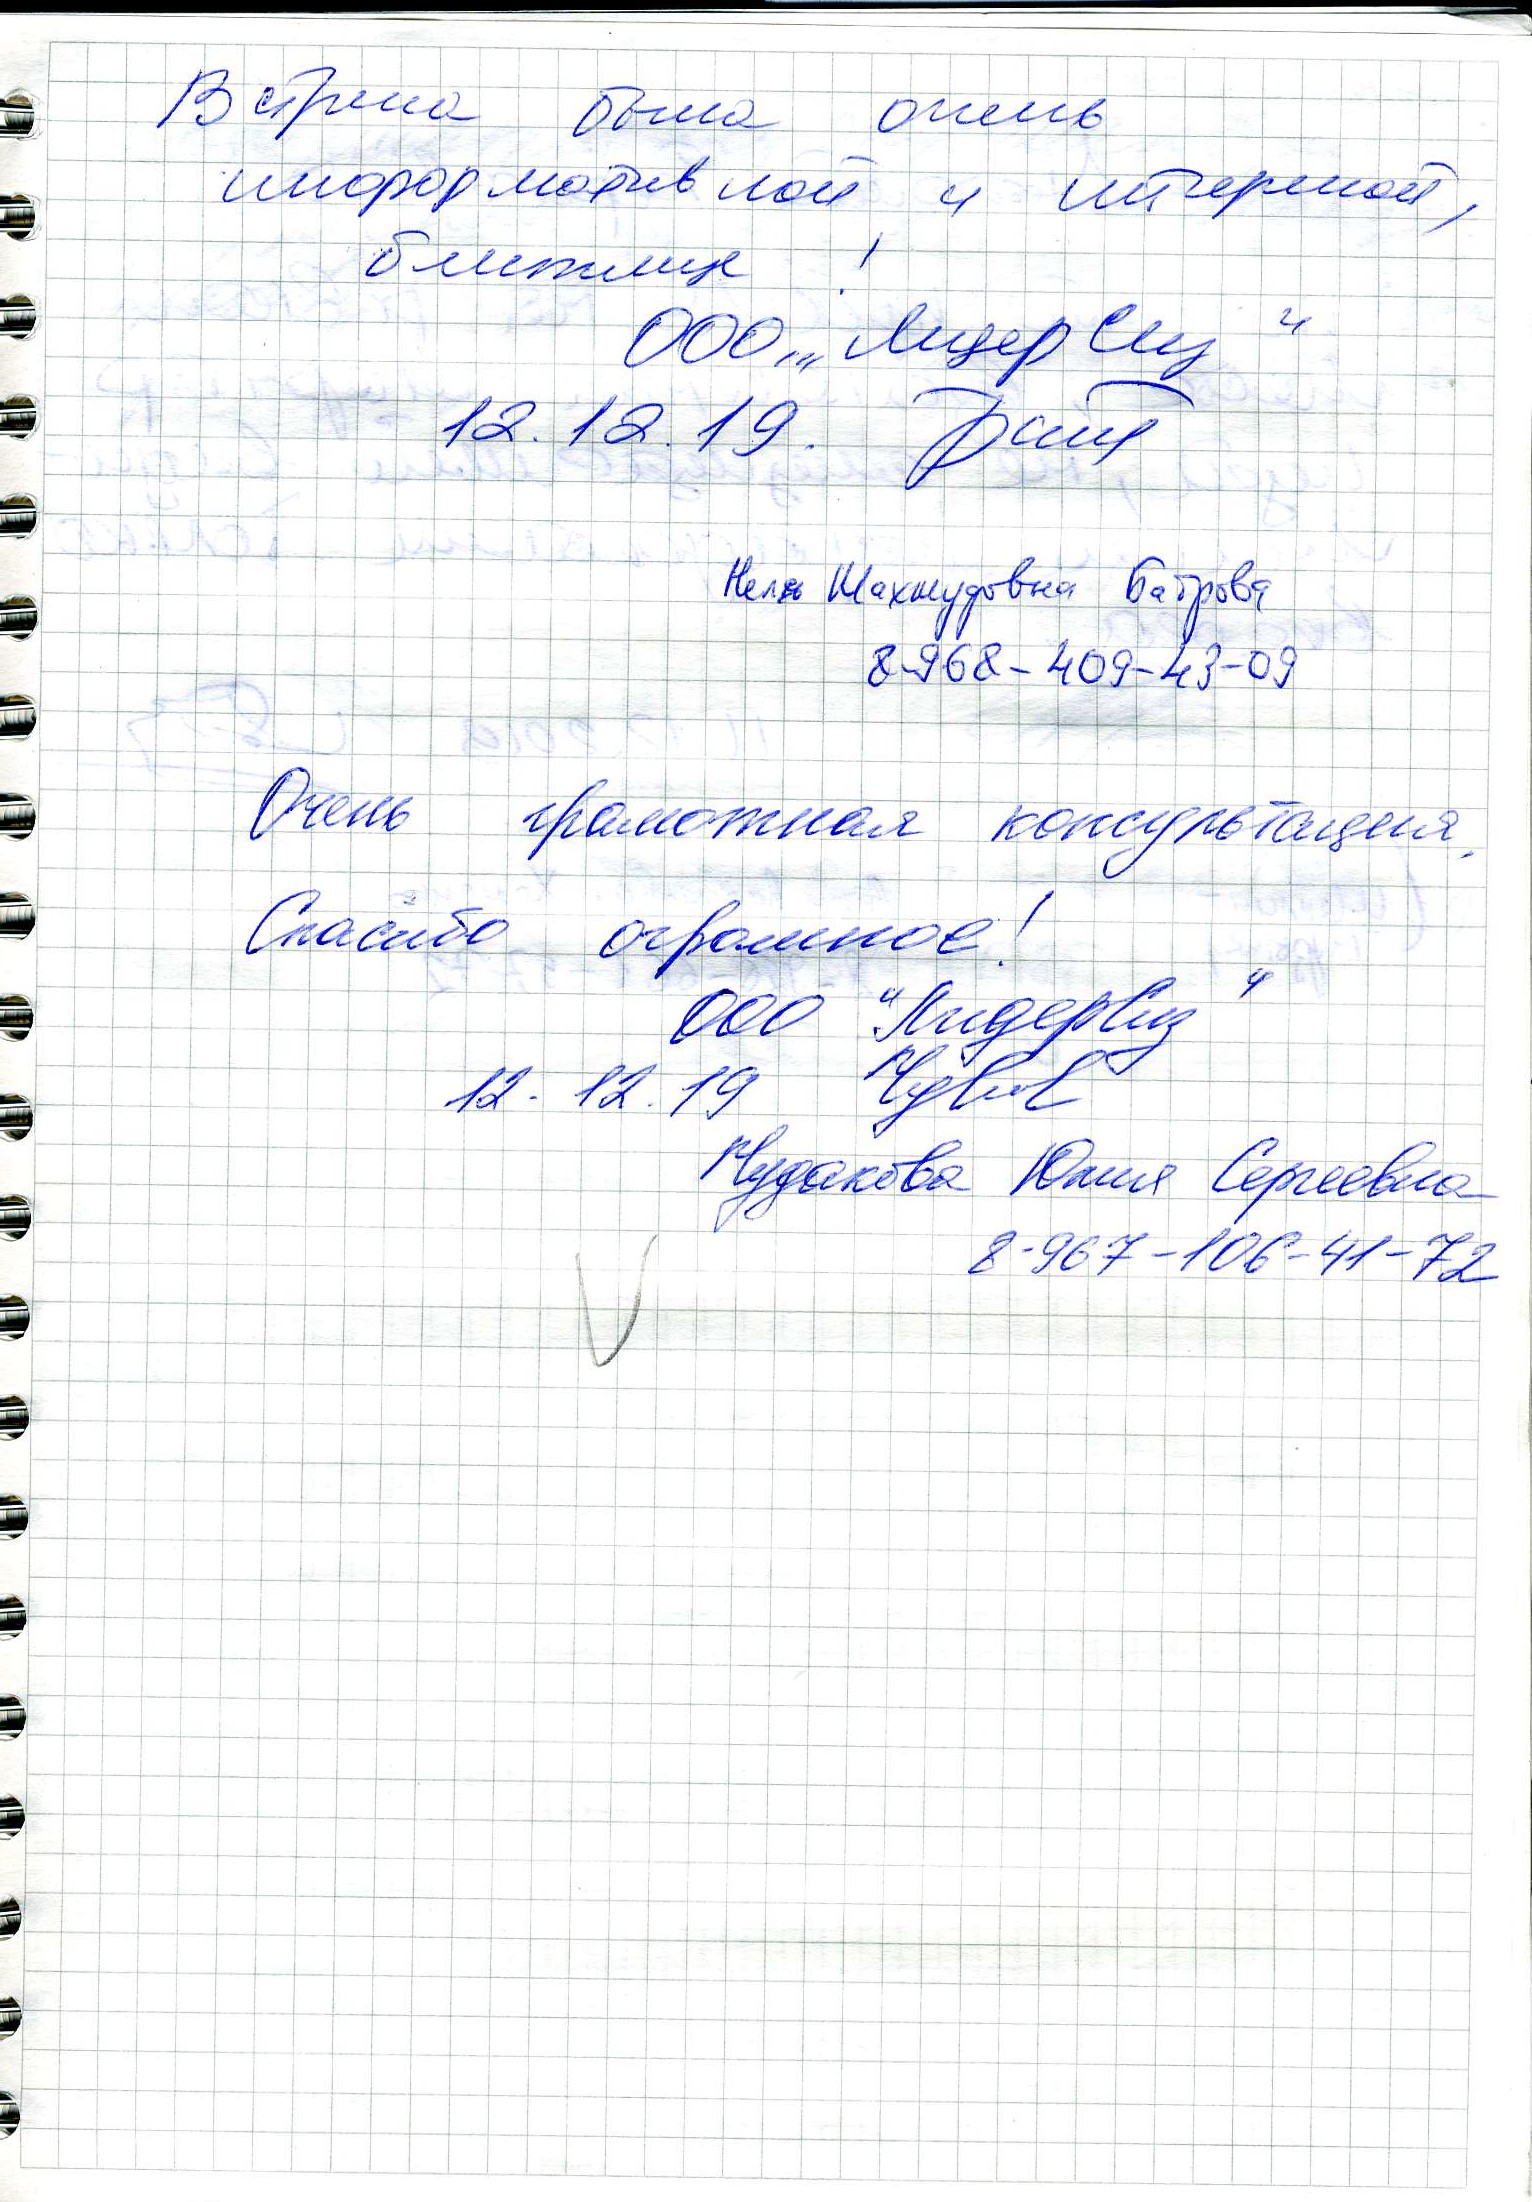 Встреча была очень
информативной и интересной,
ООО „Лидер Сиз“
12.12.19.
Шахмудовна Батрова
8-968-409-43-09
Очень грамотная консультация.
Спасибо огромное!
ООО "ЛидерСиз"
12.12.19
Чудакова Юлия Сергеевна
8-967-106-41-72